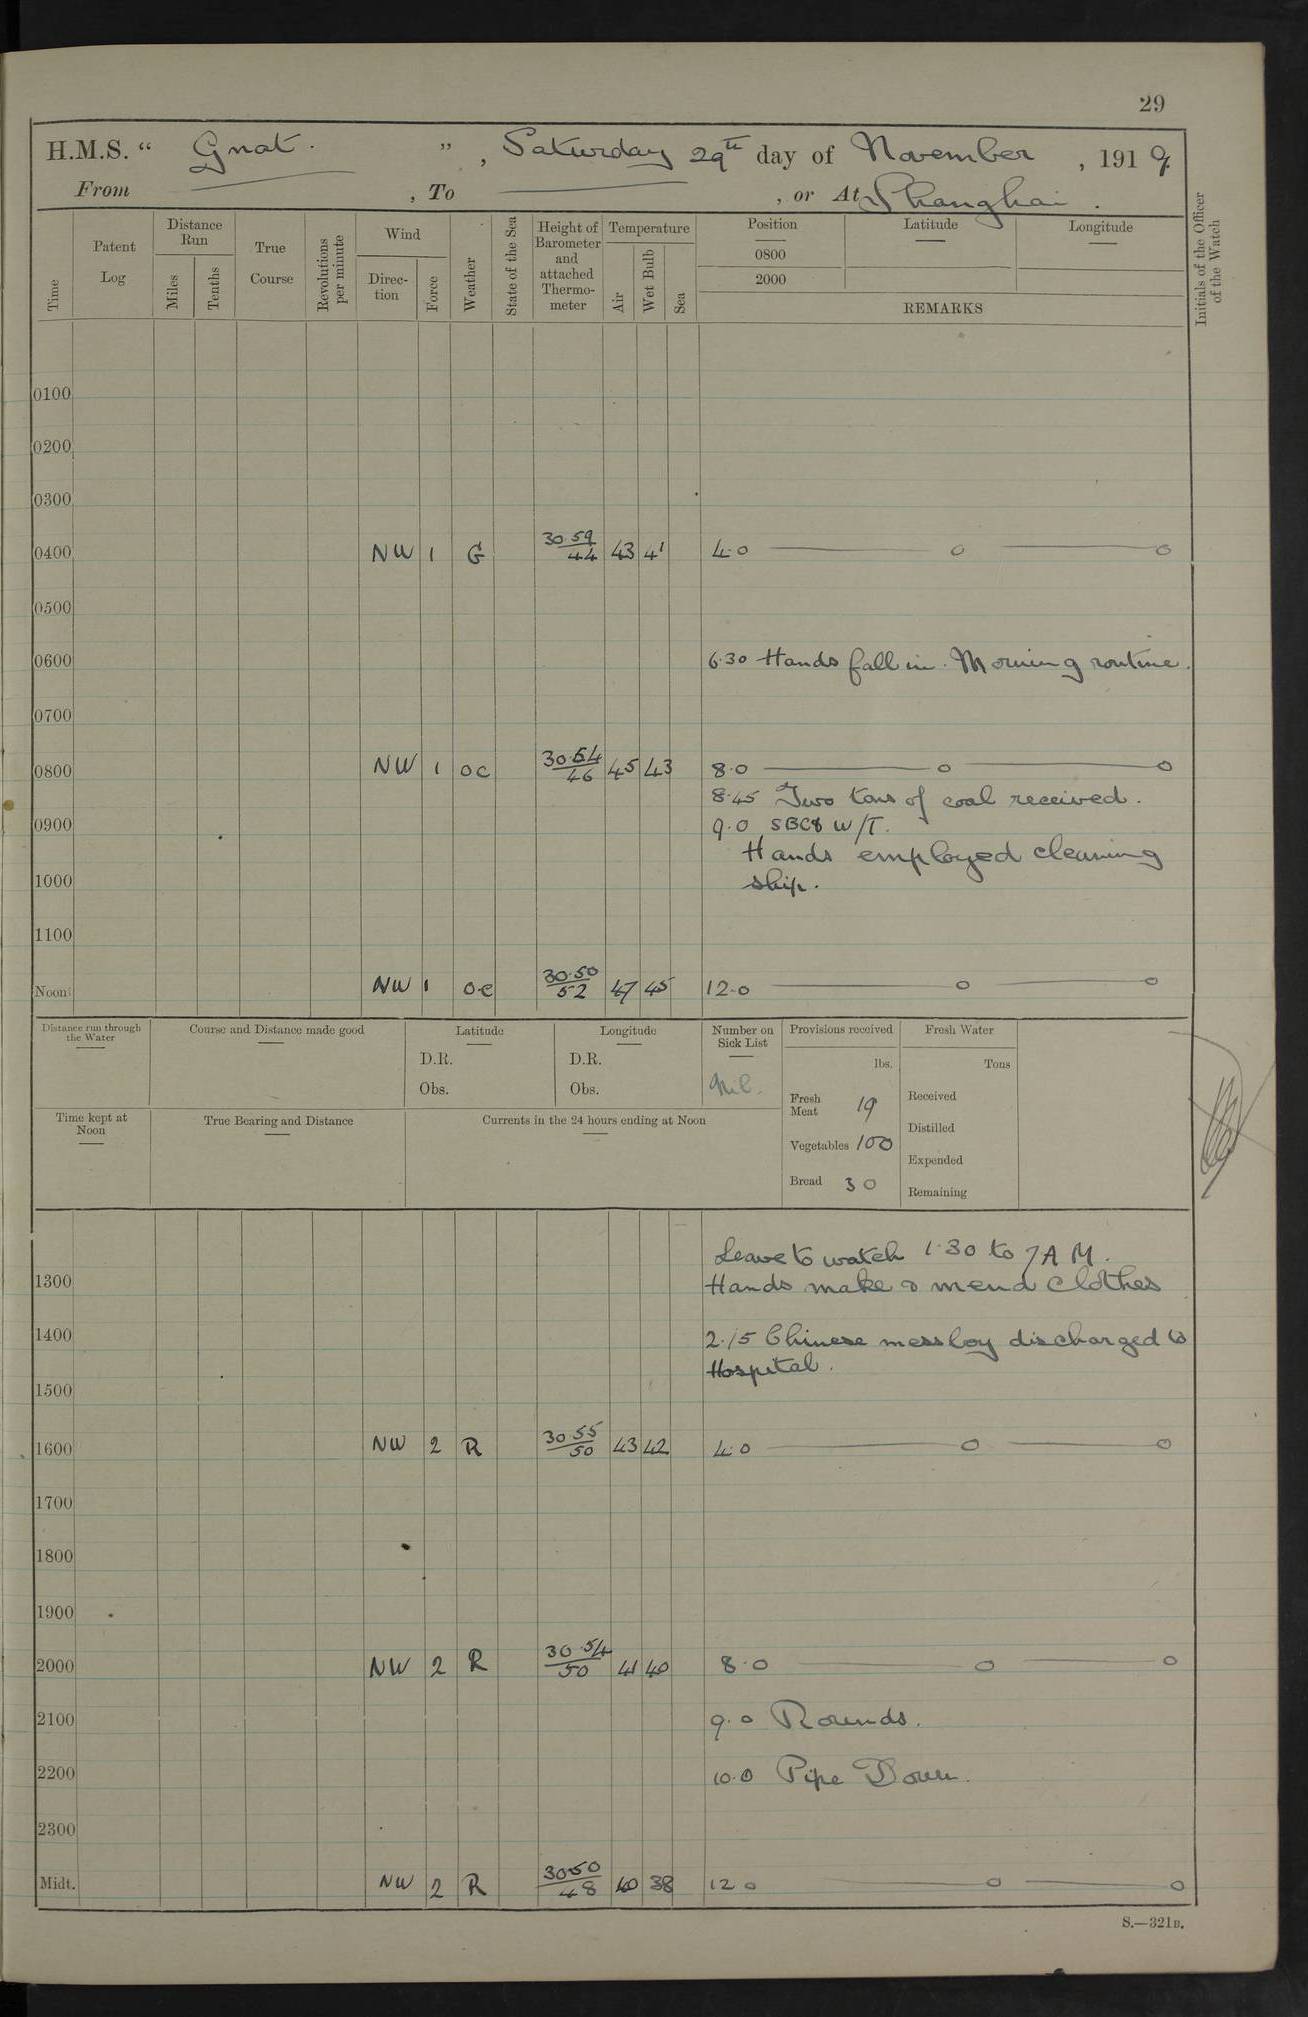 29
H.M.S. “ Gnat. ” , Saturday 29th day of November , 1919.
From , To , or At Shanghai .
Time Patent Log Distance Run Miles Tenths True Course Revolutions per minute Wind Direc-tion Force Weather State of the Sea Height of Barometer and attached Thermo-meter Temperature Air Wet Bulb Sea Position 0800 2000 Latitude Longitude
REMARKS
Initials of the Officer of the Watch
0100
0200
0300
0400 NW 1 G 30.59/44 43 41 4.0 — o — o
0500
0600 6.30 Hands fall in. Morning routine.
0700
0800 NW 1 oc 30.54/46 45 43 8.0 — o — o
8.45 Two tons of coal received.
0900 9.0 SBC8 W/T.
Hands employed cleaning
1000 ship.
1100
Noon NW 1 oc 30.50/52 47 45 12.0 — o — o
Distance run through the Water Course and Distance made good Latitude Longitude Number on Sick List Provisions received Fresh Water
D.R. D.R. lbs. Tons
Obs. Obs. Nil.
Fresh Meat 19 Received
Time kept at Noon True Bearing and Distance Currents in the 24 hours ending at Noon
Distilled
Vegetables 100
Expended
Bread 30 Remaining
Leave to watch 1.30 to 7 AM.
1300 Hands make & mend clothes
1400 2.15 Chinese messboy discharged to
Hospital.
1500
1600 NW 2 R 30.55/50 43 42 4.0 — o — o
1700
1800
1900
2000 NW 2 R 30.54/50 41 40 8.0 — o — o
2100 9.0 Rounds.
2200 10.0 Pipe Down.
2300
Midt. NW 2 R 3050/48 40 38 12 0 — o — o
S.—321B.